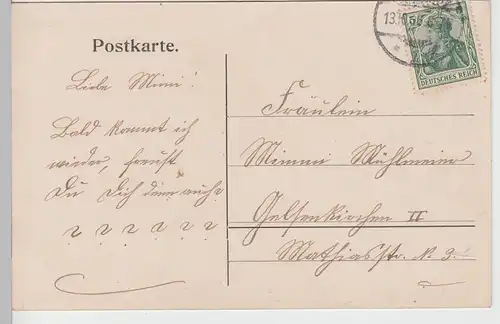 Postkarte.
Liebe Mimi!
Bald kommt ich
wieder, freust
Du Dich denn auch?
? ? ? ? ? ?
13.10.
DEUTSCHES REICH
Fräulein
Mimmi Mühlmeier
Gelsenkirchen II
Mathiasstr. N. 3.